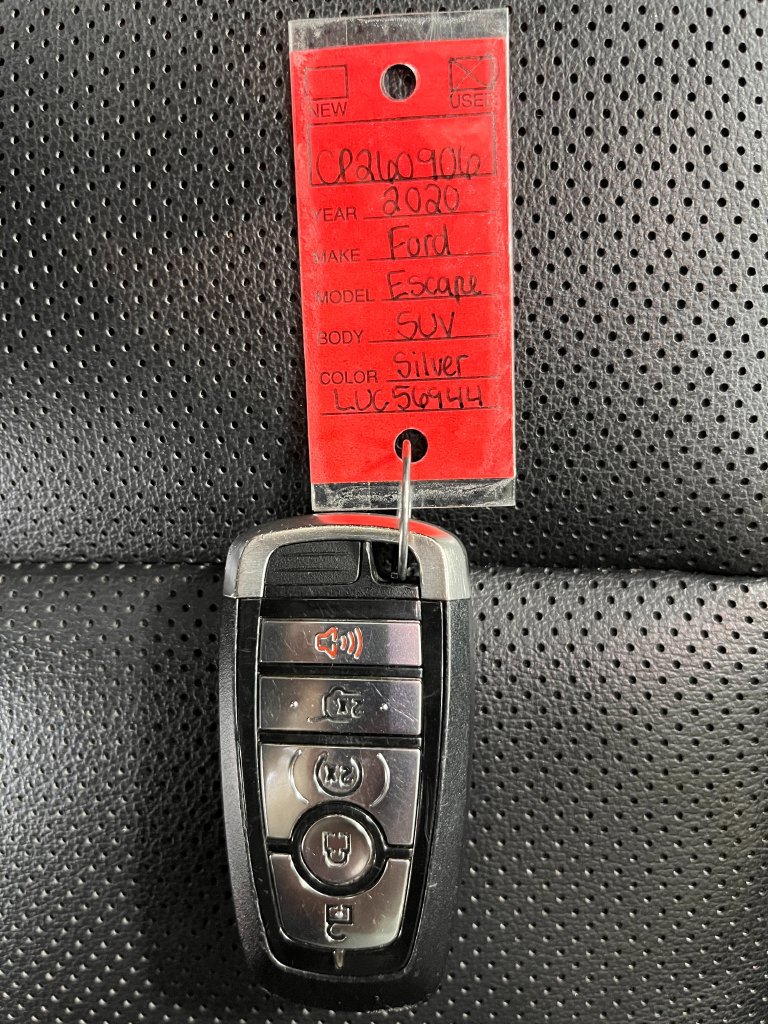 NEW USED
CP260906
YEAR 2020
MAKE Ford
MODEL Escape
BODY SUV
COLOR Silver
LUC56944
2x
2x